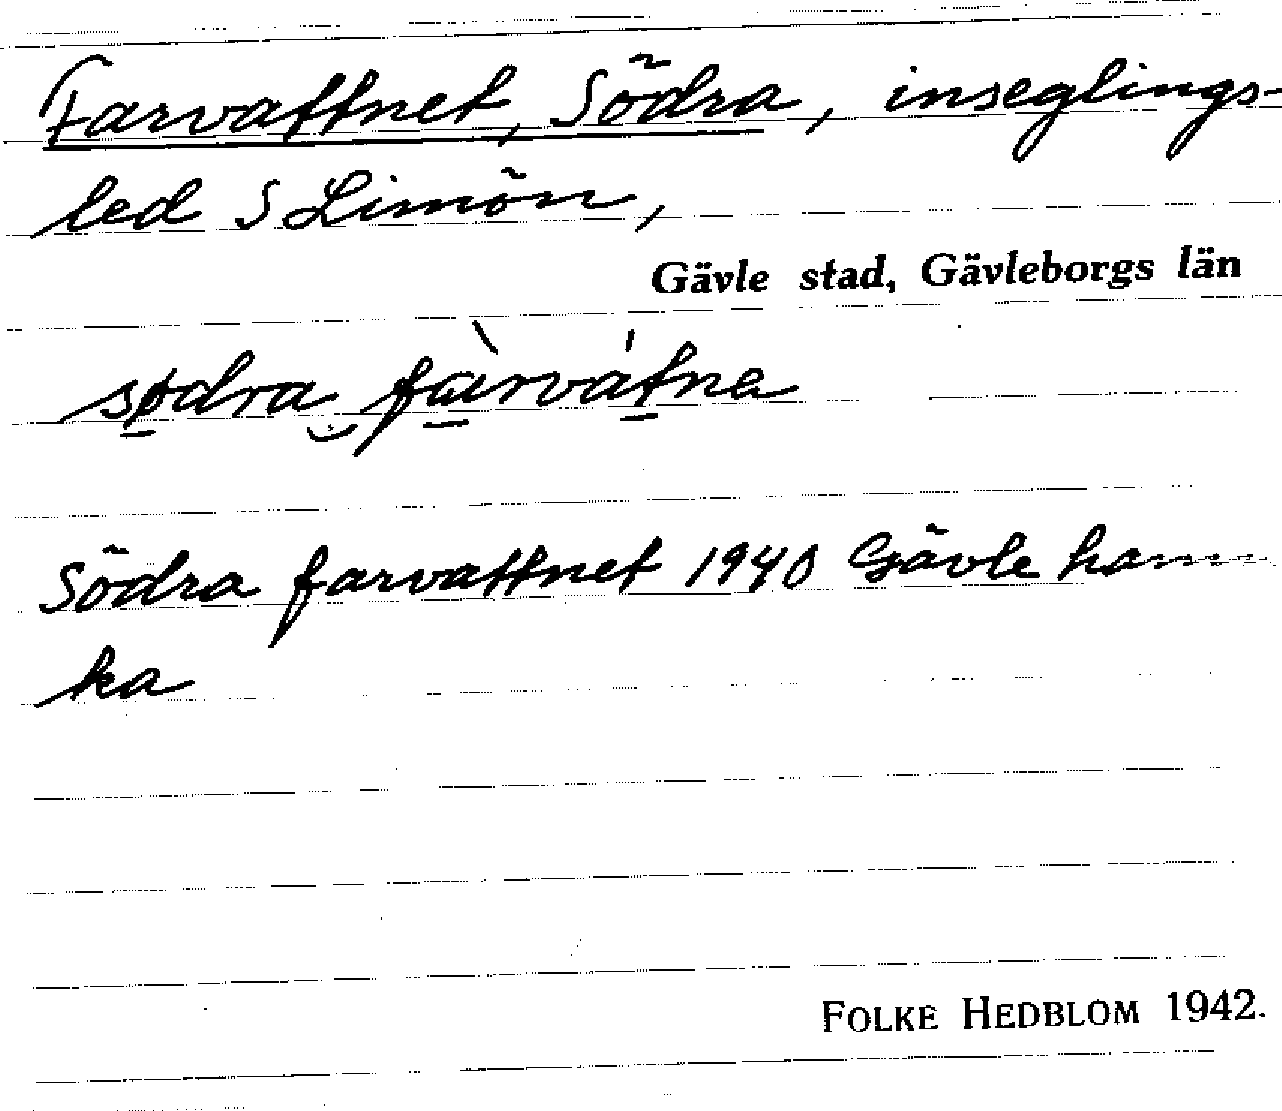 Farvattnet, Södra, inseglings-
led S Limön,
Gävle stad, Gävleborgs län
södra fàrvátne
Södra farvattnet 1940 Gävle hamn
ka
FOLKE HEDBLOM 1942.